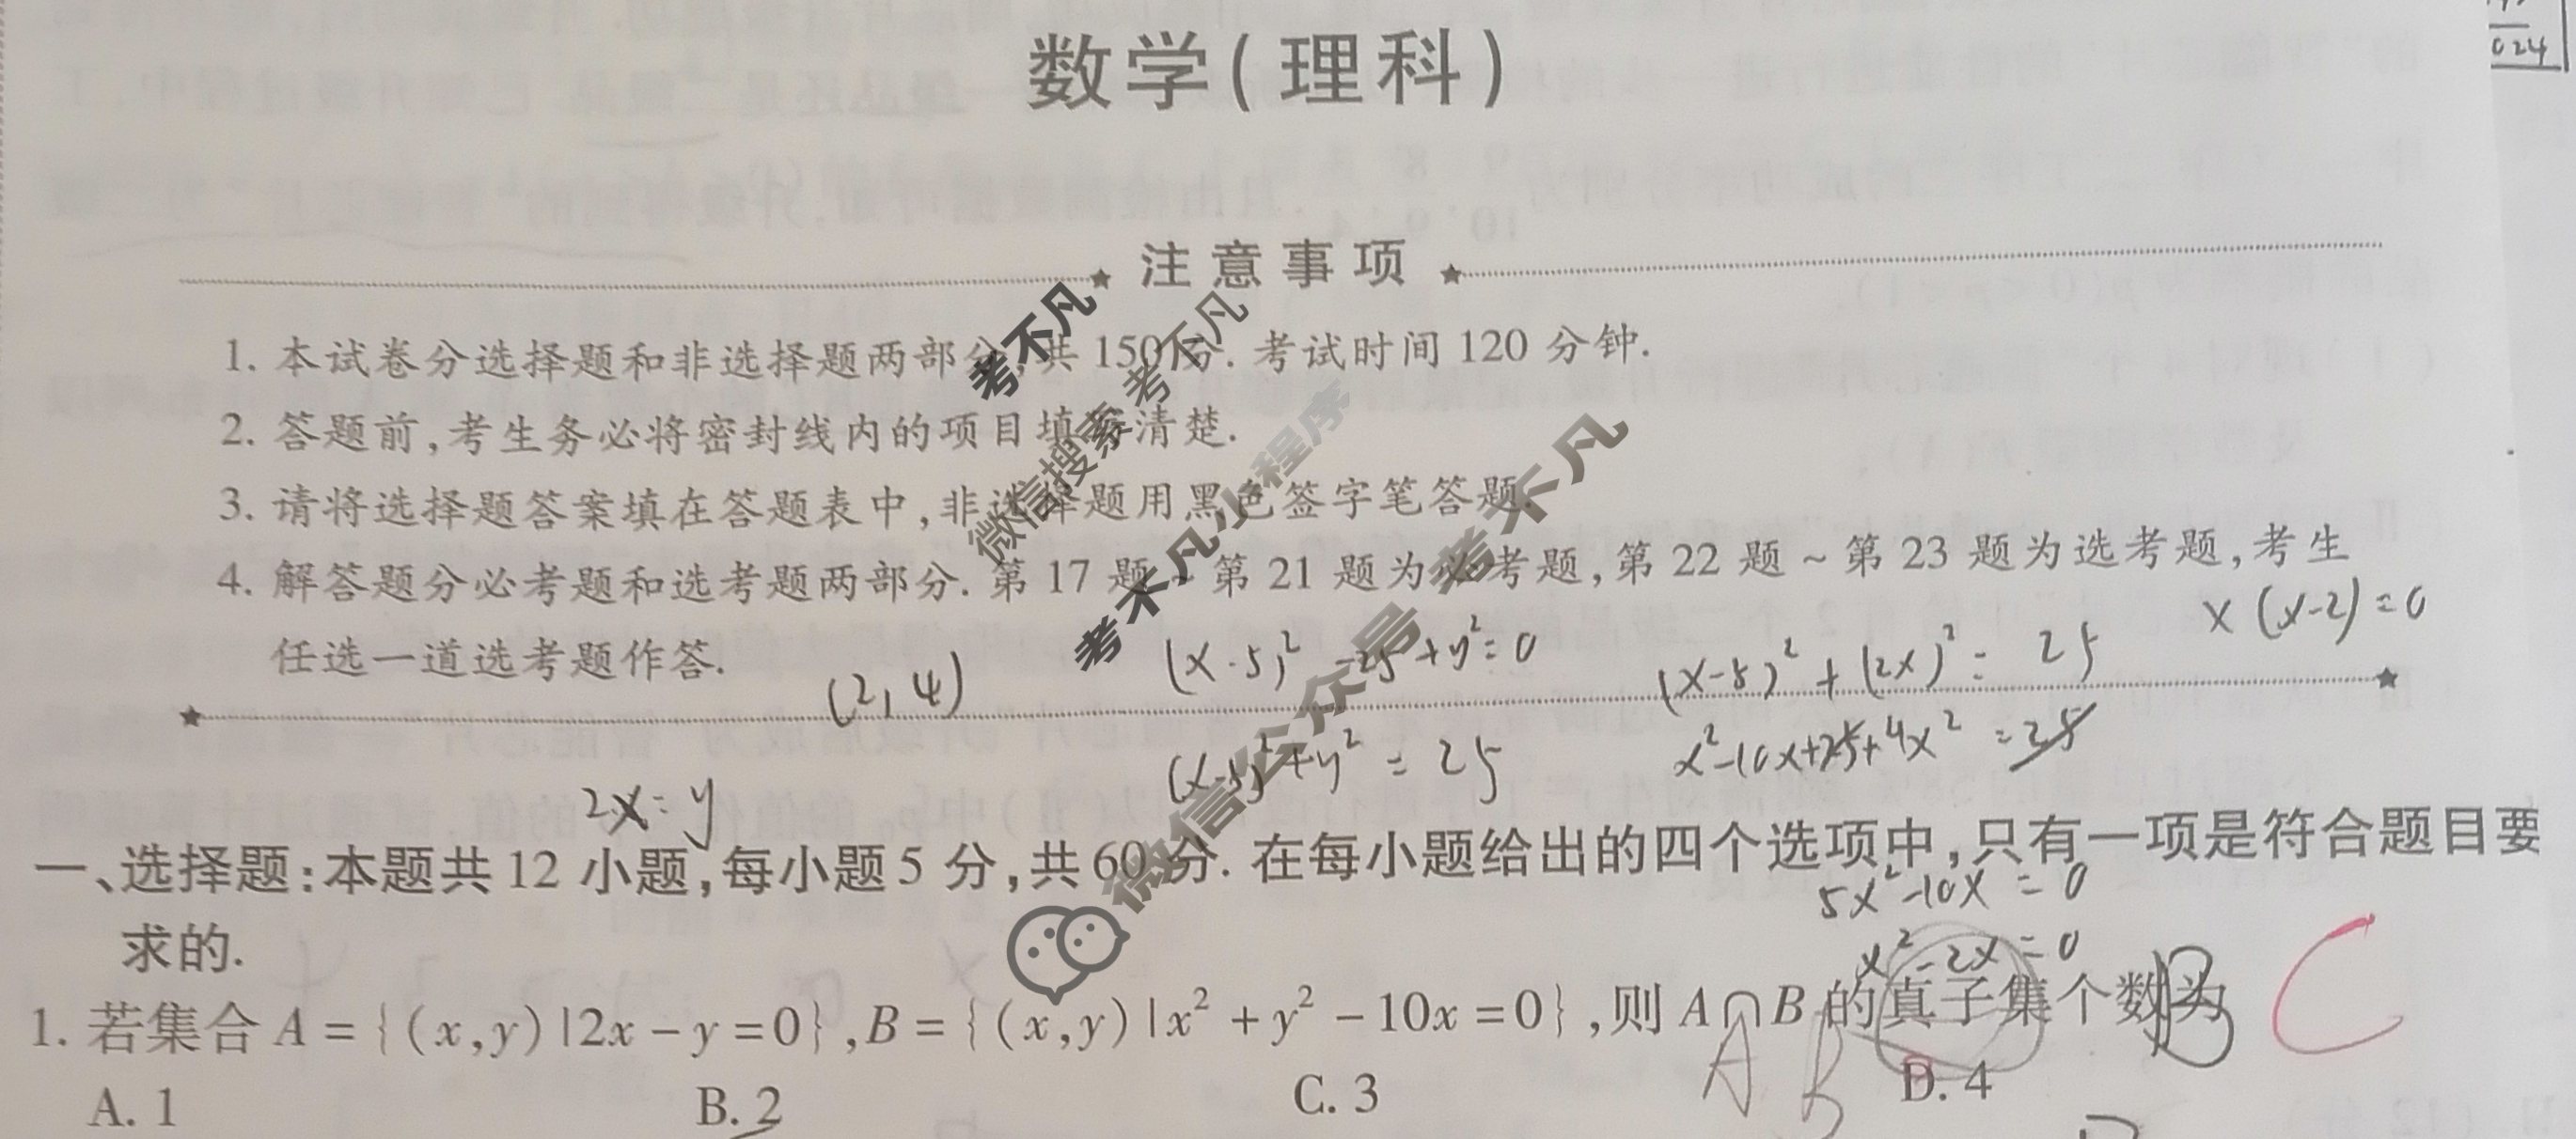 024
数学(理科)
注意事项
1. 本试卷分选择题和非选择题两部分,共 150 分. 考试时间 120 分钟.
2. 答题前,考生务必将密封线内的项目填写清楚.
3. 请将选择题答案填在答题表中,非选择题用黑色签字笔答题.
4. 解答题分必考题和选考题两部分. 第 17 题 ~ 第 21 题为必考题,第 22 题 ~ 第 23 题为选考题,考生
任选一道选考题作答.
考不凡
微信搜索 考不凡
考不凡小程序
微信公众号 考不凡
x(x-2)=0
(2,4)
(x-5)²-25+y²=0
(x-5)²+(2x)²=25
(x-5)²+y²=25
x²-10x+25+4x²=25
2x=y
一、选择题:本题共 12 小题,每小题 5 分,共 60 分. 在每小题给出的四个选项中,只有一项是符合题目要
5x²-10x=0
求的.
x²-2x=0
1. 若集合 A={(x,y)|2x-y=0},B={(x,y)|x²+y²-10x=0},则 A∩B 的真子集个数为
B
C
A. 1 B. 2 C. 3 D. 4
A B